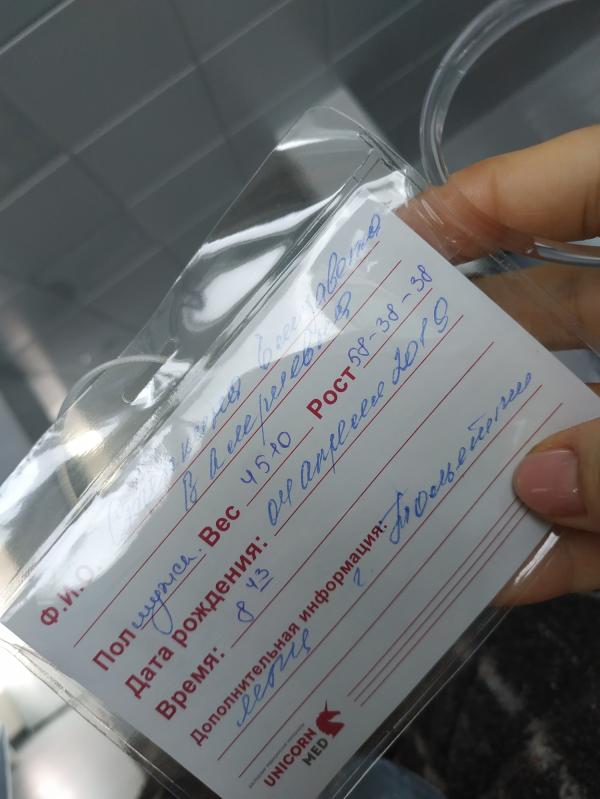 Ф.И.О. Елизавета
Валерьевна
Пол мужск. Вес 4510 Рост 58-38-38
Дата рождения: 04 апреля 2019
Время: 8 43
Дополнительная информация:
г. Тольятти
UNICORN
MED